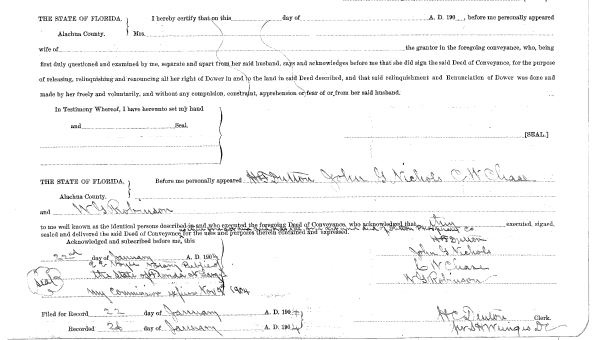 THE STATE OF FLORIDA, I hereby certify that on this day of A. D. 190 , before me personally appeared
Alachua County. Mrs.
wife of the grantor in the foregoing conveyance, who, being
first duly questioned and examined by me, separate and apart from her said husband, says and acknowledges before me that she did sign the said Deed of Conveyance, for the purpose
of releasing, relinquishing and renouncing all her right of Dower in and to the land in said Deed described, and that said relinquishment and Renunciation of Dower was done and
made by her freely and voluntarily, and without any compulsion, constraint, apprehension or fear of or from her said husband.
In Testimony Whereof, I have hereunto set my hand
and Seal.
[SEAL.]
THE STATE OF FLORIDA, Before me personally appeared H F Dutton John G Nichols C W Chase
Alachua County.
and W G Robinson
to me well known as the identical persons described in and who executed the foregoing Deed of Conveyance, who acknowledged that they executed, signed,
sealed and delivered the said Deed of Conveyance for the uses and purposes therein contained and expressed.
Acknowledged and subscribed before me, this
22nd day of January A. D. 1904
Notary Public
the State of Florida at Large
Seal
My Commission expires Nov 1904
H F Dutton
John G Nichols
C W Chase
W G Robinson
Filed for Record 22 day of January A. D. 1904
Recorded 26 day of January A. D. 1904
H C Denton Clerk.
D C